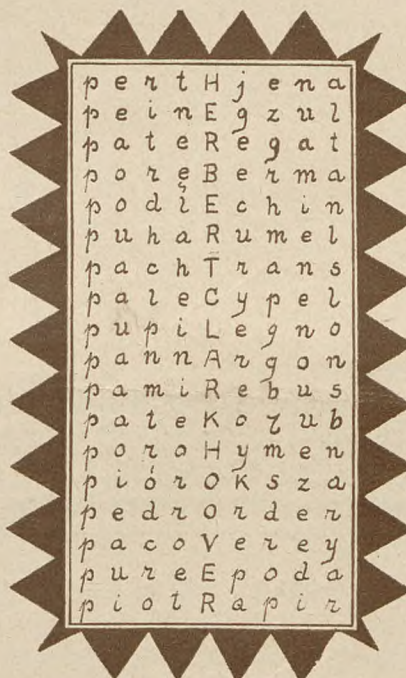 pertHjena
peinEgzul
pateRegat
poręBerma
podłEchin
puhaRumel
pachTrans
paleCypel
pupiLegno
pannArgon
pamiRebus
pateKozub
poroHymen
piórOKsza
pedrOrder
pacoVerey
pureEpoda
piotRapir